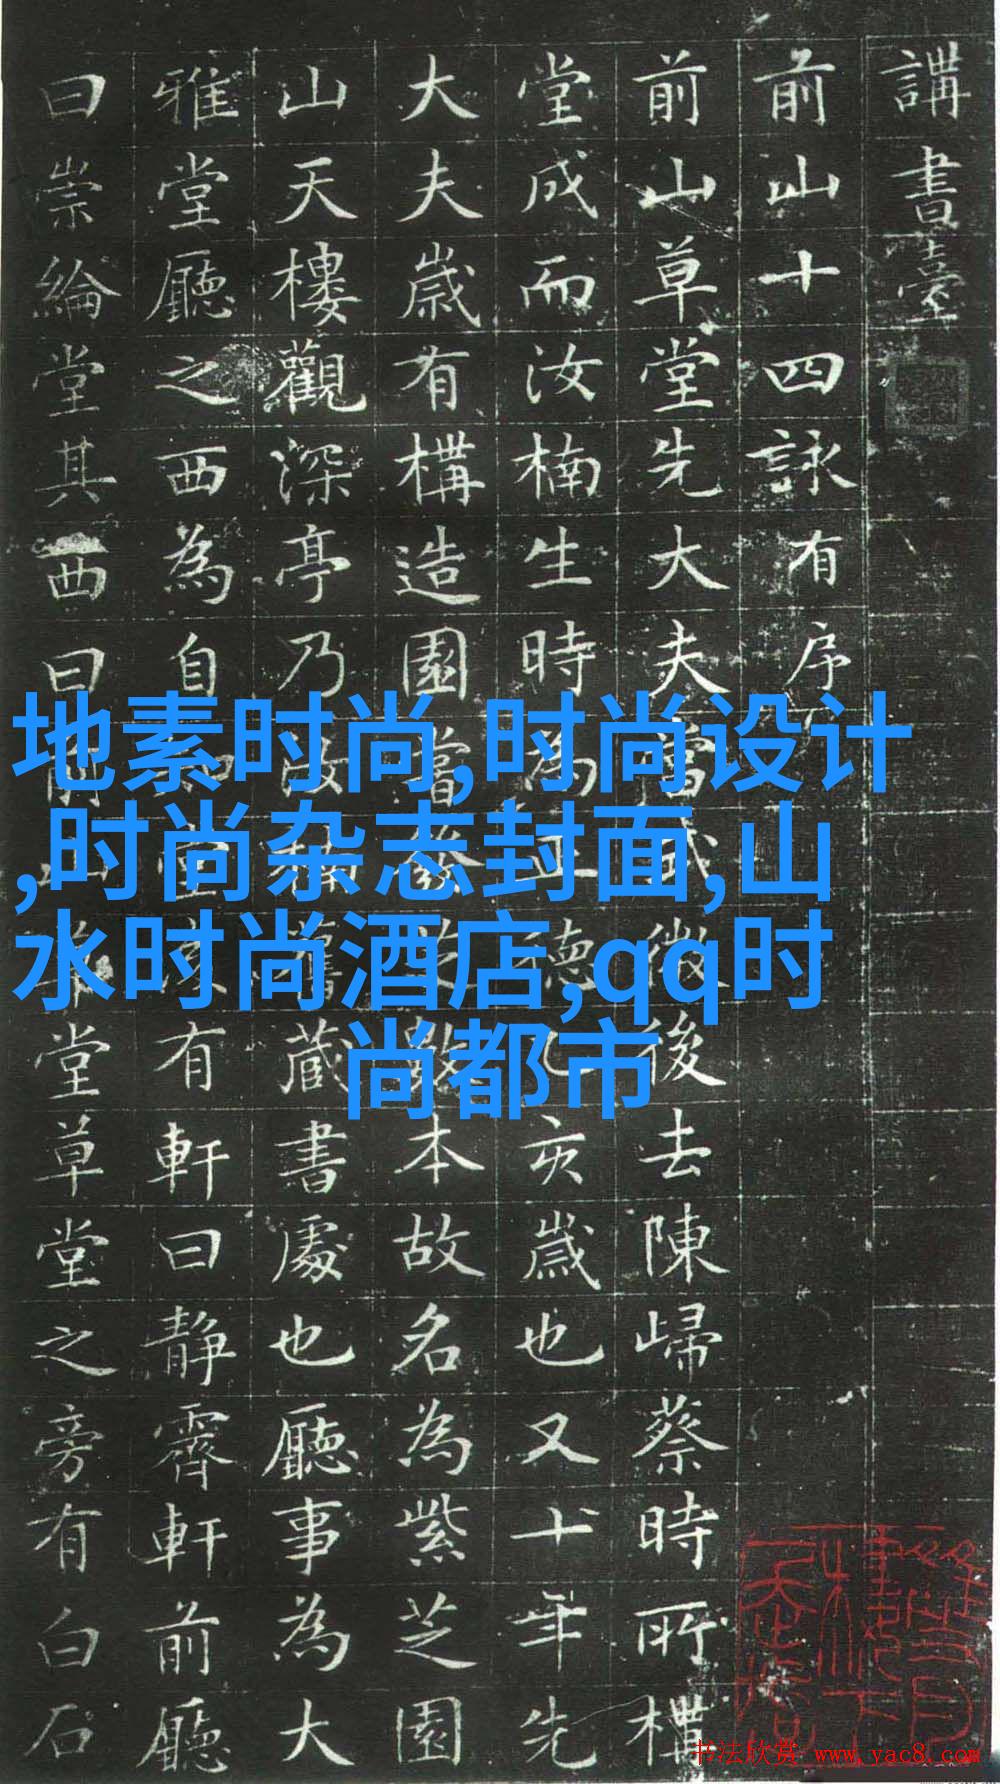 講書臺
前山十四詠有序
前山草堂先大夫當微後去陳歸蔡時所構
堂成而汝楠生時為正德乙亥歲也又十年先
大夫歲有構造園嘗數本故名為紫芝園
山天樓觀深亭乃舊藏書處也廳事為大
雅堂廳之西為自堂有軒曰靜齋軒前廳
曰崇綸堂其西曰前山堂草堂之旁有白石
地素时尚,时尚设计
,时尚杂志封面,山
水时尚酒店,qq时
尚都市
书法欣赏 www.yac8.com